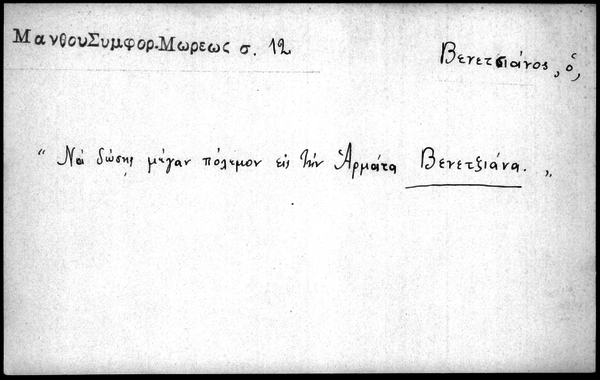 ΜανθουΣυμφορ.Μωρεως σ. 12
Βενετσιάνος, ὁ,
“ Νὰ δώσῃς μέγαν πόλεμον εἰς τὴν Ἀρμάτα Βενετζιάνα. „